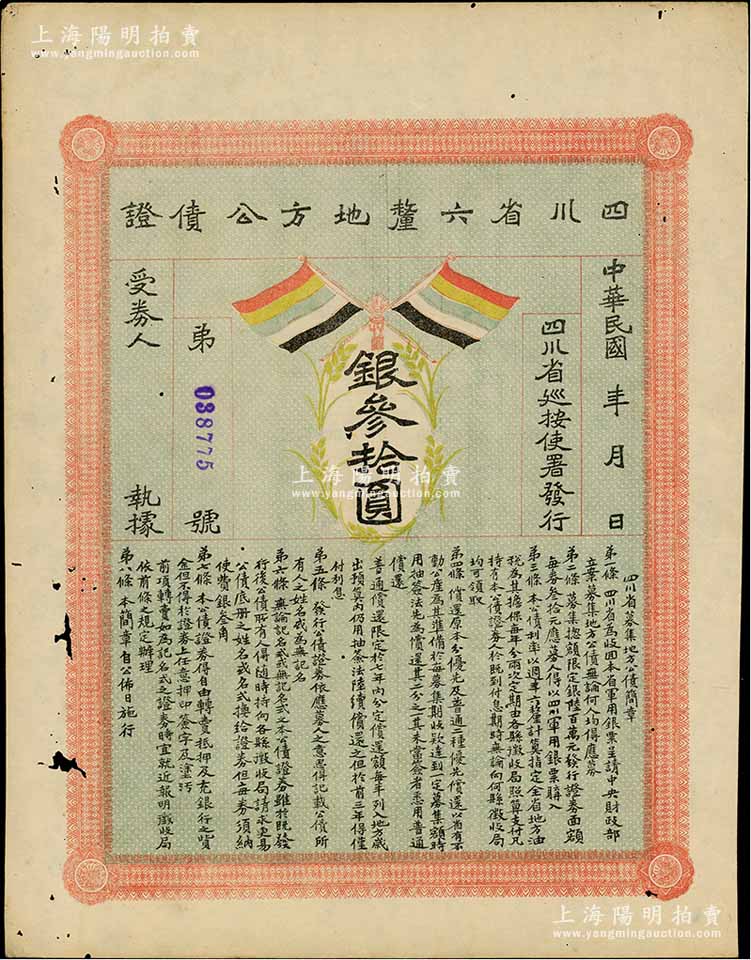 上海陽明拍賣
www.yangmingauction.com
四川省六釐地方公債證
中華民國 年 月 日
四川省巡按使署發行
銀參拾圓
上海陽明拍賣
www.yangmingauction.com
弟 038775 號
受券人 執據
四川省募集地方公債簡章
第一條 四川省為收回本省軍用銀票呈請中央財政部
立案募集地方公債無論何人均得應募
第二條 募集總額限定銀陸百萬元發行證券面額
每券叁拾元應募人得以四川軍用銀票購入
第三條 本公債利率以週年六釐計算指定全省地方油
稅為其擔保每年分兩次定期由各縣徵收局照算支付凡
持有本公債證券人於既到付息期時無論向何縣徵收局
均可領取
第四條 償還原本分優先及普通二種優先償還以省有不
動公產為其準備於每募集期收款達到一定募集額時
用抽籤法先為償還其二分之一其未當籤者悉用普通
償還
普通償還限定於七年內分定償還額每年列入地方歲
出預算內仍用抽籤法陸續償還之但於前三年得僅
付利息
第五條 發行公債證券依應募人之意思得記載公債所
有人之姓名或為無記名
第六條 無論記名式或無記名式之本公債證券雖於既發
行後公債所有人得隨時持向各縣徵收局請求更易
公債底冊之姓名或名式換給證券但每券須納
使費銀叁角
第七條 本公債證券得自由轉賣抵押及充銀行之貨
金但不得於證券上任意押印簽字及塗污
前項轉賣如為記名式之證券時宜就近報明徵收局
依前條之規定辦理
第八條 本簡章自公佈日施行
上海陽明拍賣
www.yangmingauction.com